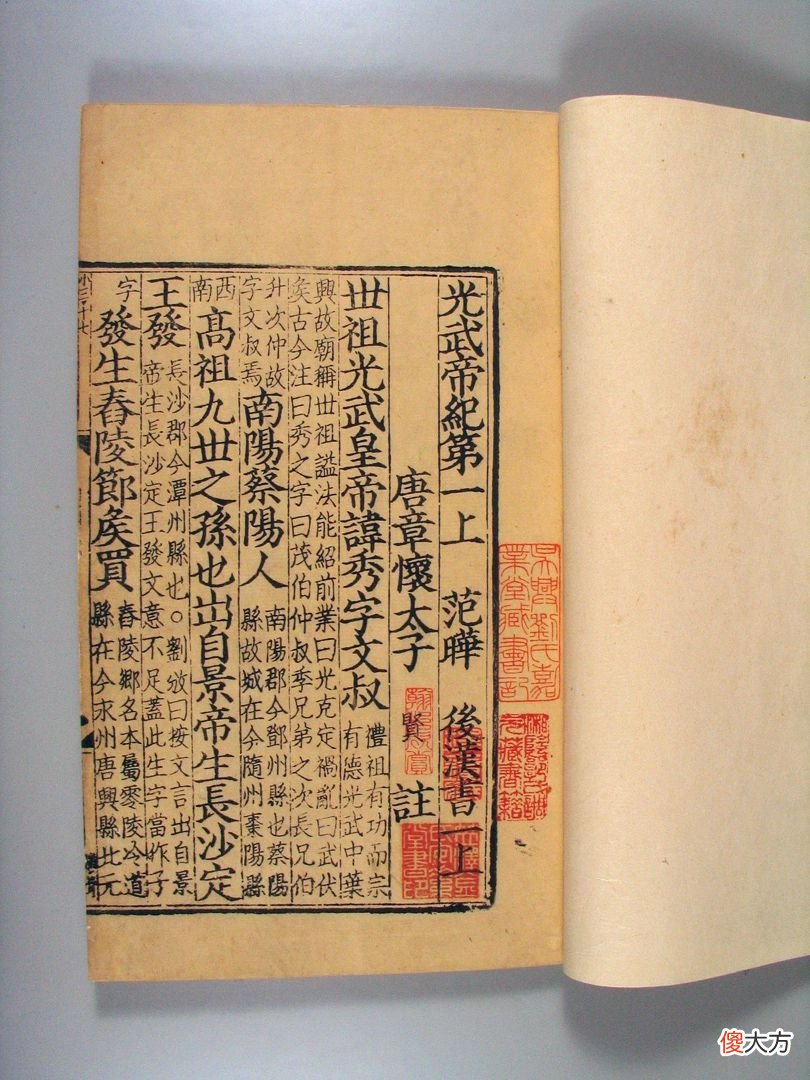 光武帝紀第一上 范曄 後漢書一上
唐章懷太子 賢 註
丗祖光武皇帝諱秀字文叔
禮祖有功而宗
有德光武中葉
興故廟稱丗祖謚法能紹前業曰光克定禍亂曰武伏
矦古今注曰秀之字曰茂伯仲叔季兄弟之次長兄伯
升次仲故
字文叔焉
南陽蔡陽人
南陽郡今鄧州縣也蔡陽
縣故城在今隋州棗陽縣
西
南
髙祖九丗之孫也出自景帝生長沙定
王發
長沙郡今潭州縣也○劉攽曰按文言出自景
帝生長沙定王發文意不足蓋此生字當作子
字
發生舂陵節矦買
舂陵鄉名本屬零陵泠道
縣在今永州唐興縣北元
吳興劉氏嘉
業堂藏書記
傻大方